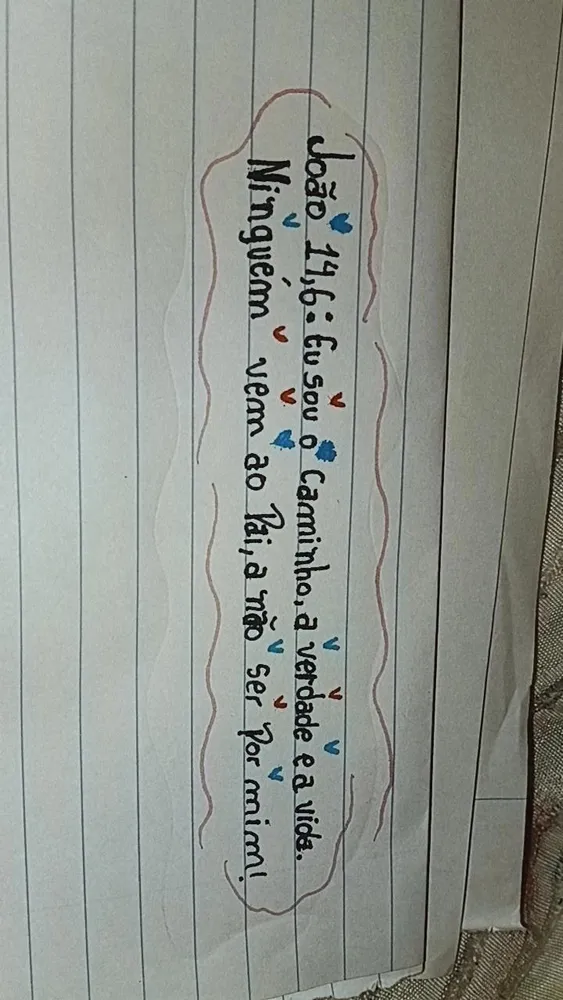 João 14,6: Eu sou o caminho, a verdade e a vida.
Ninguém vem ao Pai, a não ser por mim!